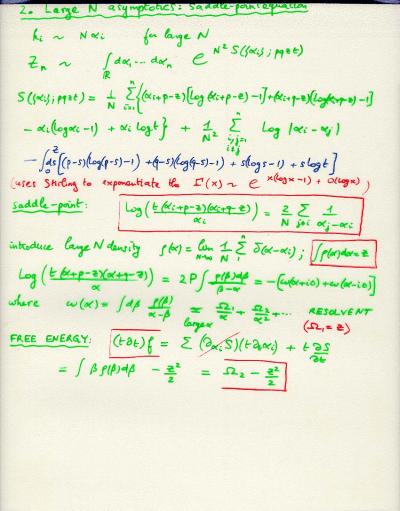 2. Large N asymptotics: saddle-point equation
hi ~ N αi for large N
Zn ~ ∫ℝ dα1 ... dαn e^{N² S({αi}; pqzt)}
S({αi}; pqzt) = 1/N Σ_{i=1}^{n} {(αi+p-z)[Log(αi+p-z)-1]+(αi+q-z)(Log(αi+q-z)-1]
- αi(logαi-1) + αi logt} + 1/N² Σ_{i,j=1, i≠j}^{n} Log |αi - αj|
- ∫_0^z ds[(p-s)(log(p-s)-1) + (q-s)(log(q-s)-1) + s(logs-1) + slogt]
(uses Stirling to exponentiate the Γ(x) ~ e^{x(logx-1) + O(logx)})
saddle-point: Log(t(αi+p-z)(αi+q-z)/αi) = 2/N Σ_{j≠i} 1/(αj-αi)
introduce large N density ρ(α) = lim_{N→∞} 1/N Σ_1^n δ(α-αi); ∫ρ(α)dα=z
Log(t(α+p-z)(α+q-z)/α) = 2P∫ρ(β)dβ/(β-α) = -(ω(α+i0)+ω(α-i0))
where ω(α) = ∫dβ ρ(β)/(α-β) ≃_{large α} Ω1/α + Ω2/α² + ... RESOLVENT
(Ω1 = z)
FREE ENERGY: (t∂t)f = Σ (∂αi S)(t∂tαi) + t∂S/∂t
= ∫ β ρ(β)dβ - z²/2 = Ω2 - z²/2